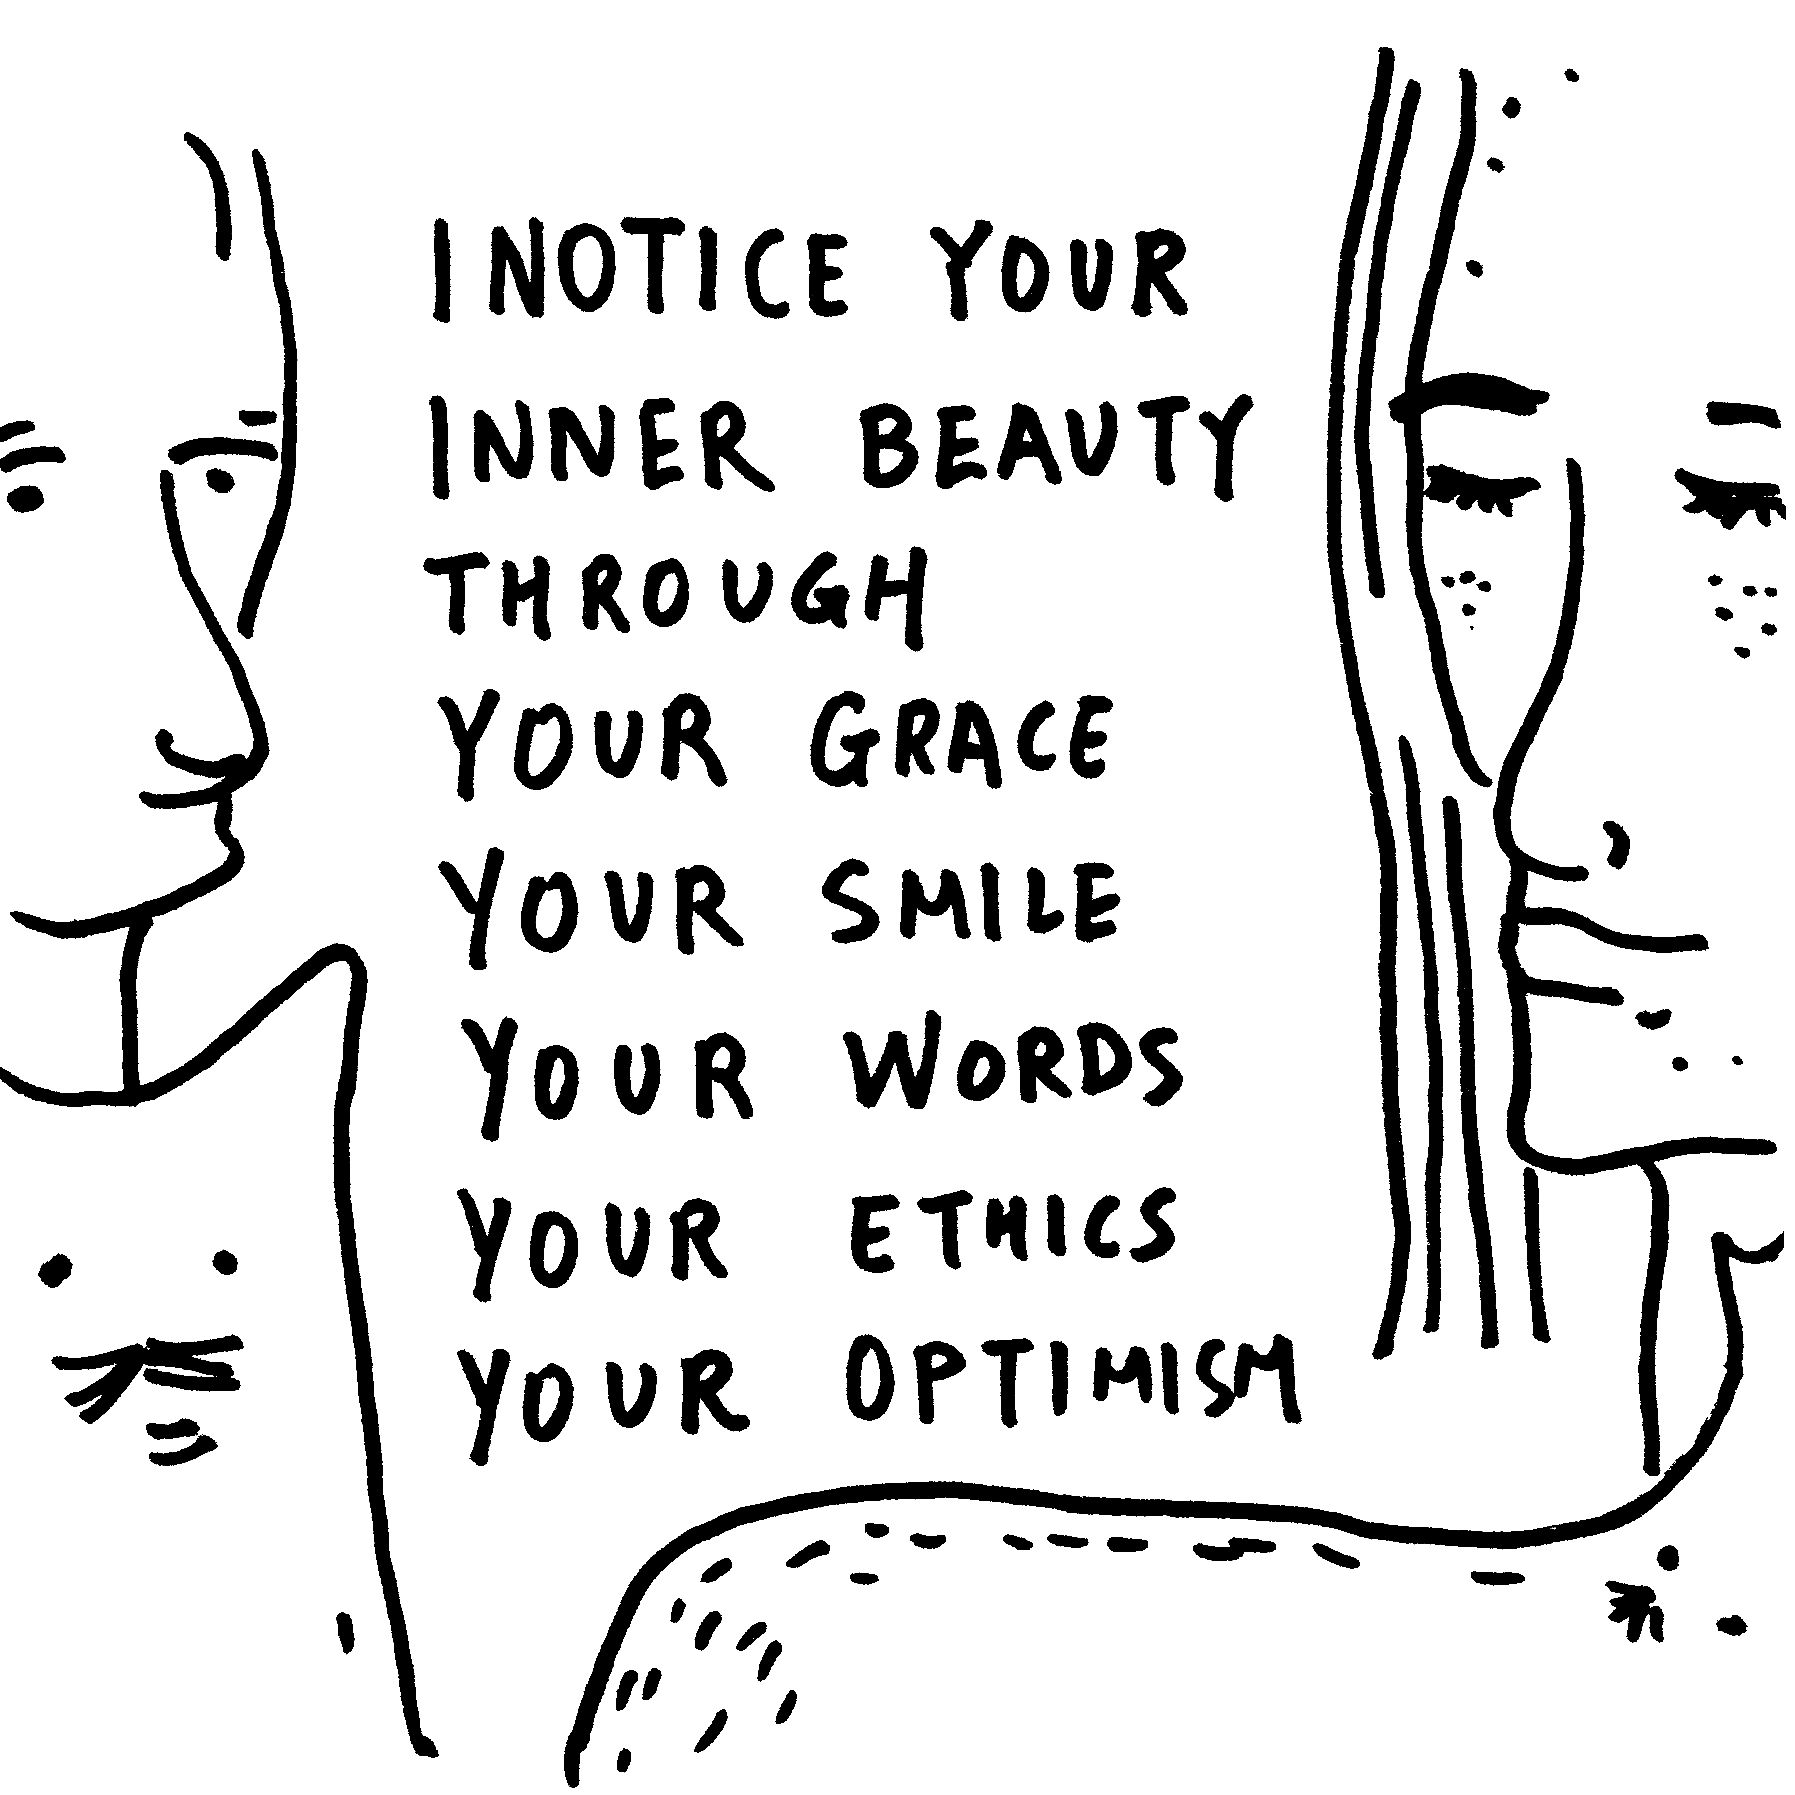 I NOTICE YOUR
INNER BEAUTY
THROUGH
YOUR GRACE
YOUR SMILE
YOUR WORDS
YOUR ETHICS
YOUR OPTIMISM